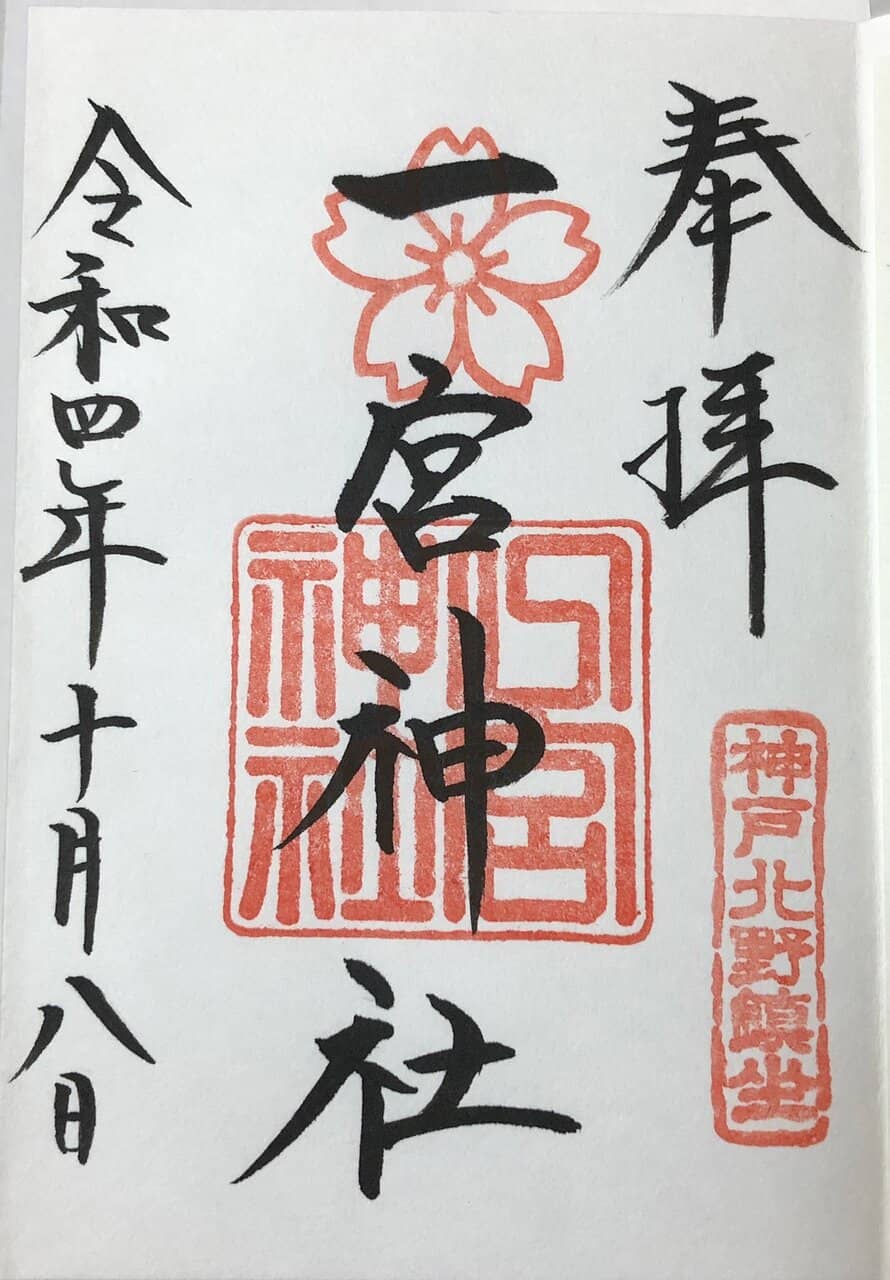 奉拝
神戸北野鎮坐
一宮神社
一宮神社
令和四年十月八日